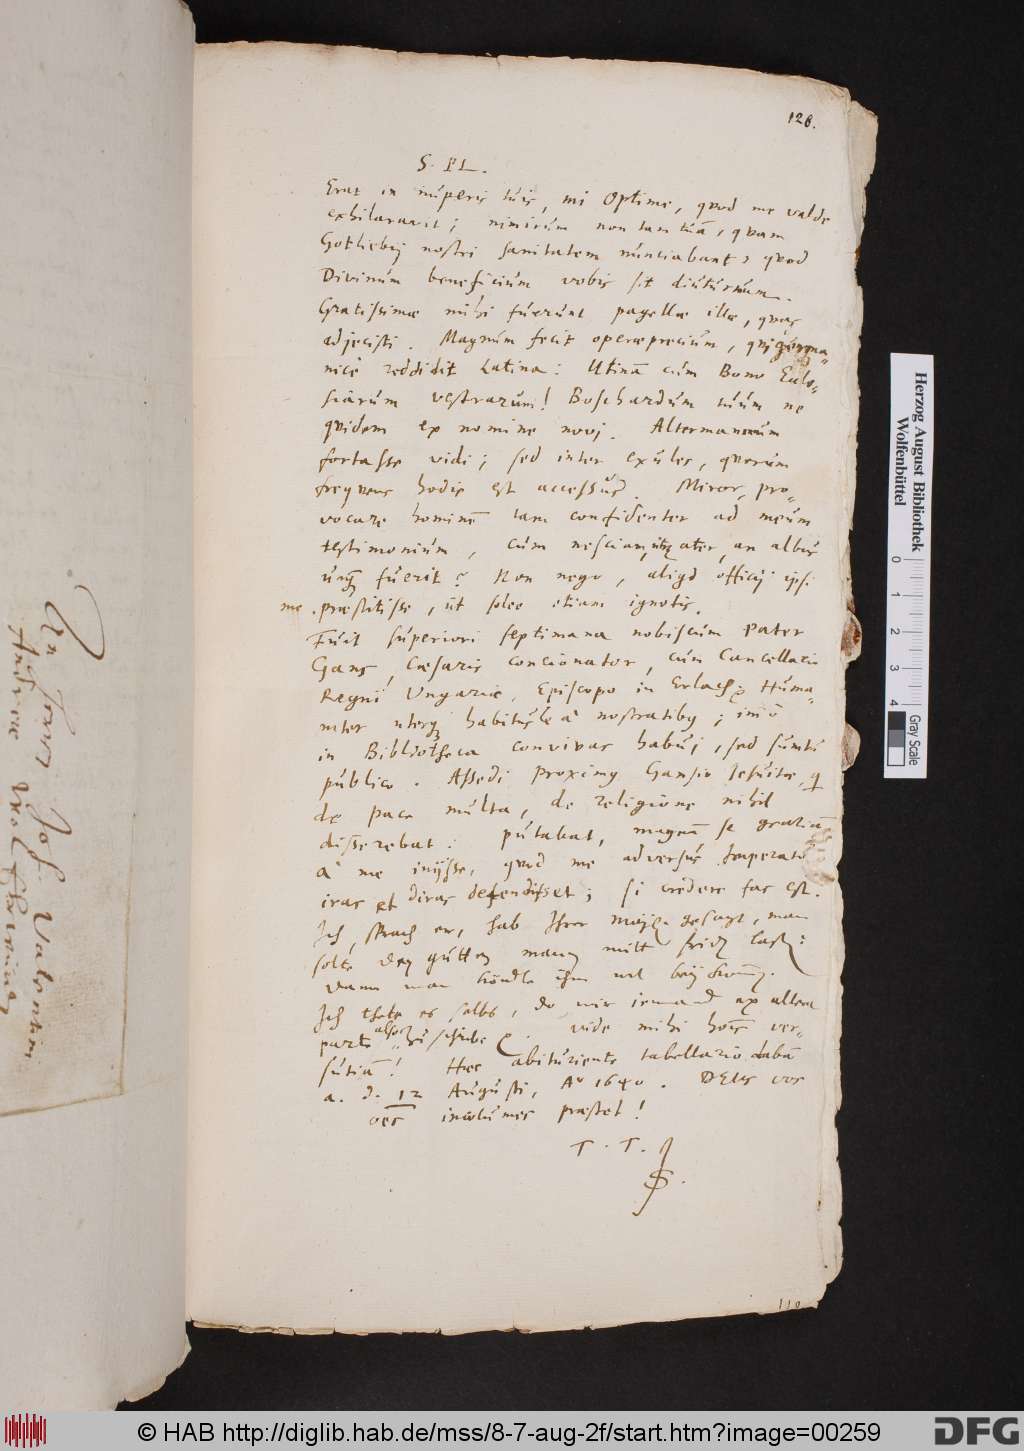 128.
S. PL.
Erat in nuperis tuis, mi Optime, quod me valde
exhilaravit; nimirum non tam tuā, quam
Gotliebij nostri sanitatem nunciabant; quod
Divinum beneficium vobis sit diuturnum.
Gratissimæ mihi fuerunt pagellæ illæ, quas
adjecisti. Magnum fecit operæprecium, qui germa-
nicè reddidit Latina: Utinā cum Bono Eccle-
siarum vestrarum! Boschardum tuum ne
quidem ex nomine novj. Altermannum
fortasse vidi; sed inter exules, quorum
frequens hodie est accessus. Miror, pro-
vocare hominē tam confidenter ad meum
testimonium, cum nesciam, ater, an albus
unq fuerit? Non nego, aliqd officij ipsi
me præstitisse, ut soleo etiam ignotis.
Fuit superiori septimana nobiscum Pater
Gans, Cæsaris concionator, cum Cancellario
Regni Ungariæ, Episcopo in Erlach. Huma-
niter uterq habitus è à nostratibq; imò
in Bibliotheca convivas habuj, sed sumtu
publico. Assedi proximq Gansio Jesuitæ, q
de pace multa, de religione nihil
disserebat: putabat, magnā se gratiā
à me inijsse, quod me adversus Imperato
iras et diras defendisset; si credere fas est.
Ich, sprach er, hab Ihrer Maj. gesagt, man
solte den gutten mann mitt fridē lassē:
dann man köndte ihm nit beykommē.
Ich thete es selbs, do mir iemand ex altera
parte also zuschribe. Vide mihi hoīs ver-
sutiā! Hæc abiturienti tabellario dabā
a. d. 12 Augusti, Aº 1640. DEus vos
oēs incolumes præstet!
T. T.
S.
118
An Herrn Joh. Valentin
Andreæ
Herzog August Bibliothek
Wolfenbüttel
0 1 2 3 4
Gray Scale
© HAB http://diglib.hab.de/mss/8-7-aug-2f/start.htm?image=00259
DFG